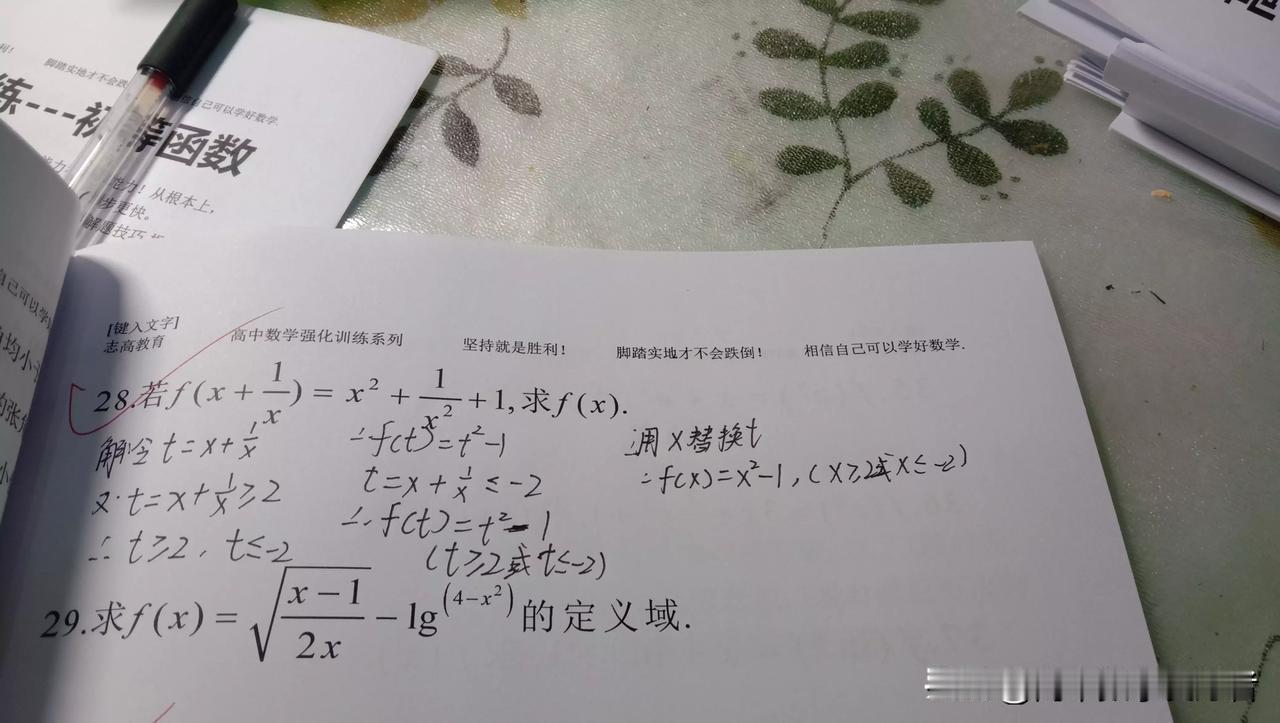 脚踏实地才不会跌
自己可以学好数学.
练---初等函数
能力！从根本上,
步更快。
解题技巧
[键入文字]
志高教育
高中数学强化训练系列 坚持就是胜利！ 脚踏实地才不会跌倒！ 相信自己可以学好数学.
28.若f(x+1/x)=x²+1/x²+1,求f(x).
解令t=x+1/x
又∵t=x+1/x≥2
∴t≥2, t≤-2
∴f(t)=t²-1
t=x+1/x≤-2
∴f(t)=t²-1
(t≥2或t≤-2)
用x替换t
∴f(x)=x²-1,(x≥2或x≤-2)
29.求f(x)=√((x-1)/2x)-lg^(4-x²)的定义域.